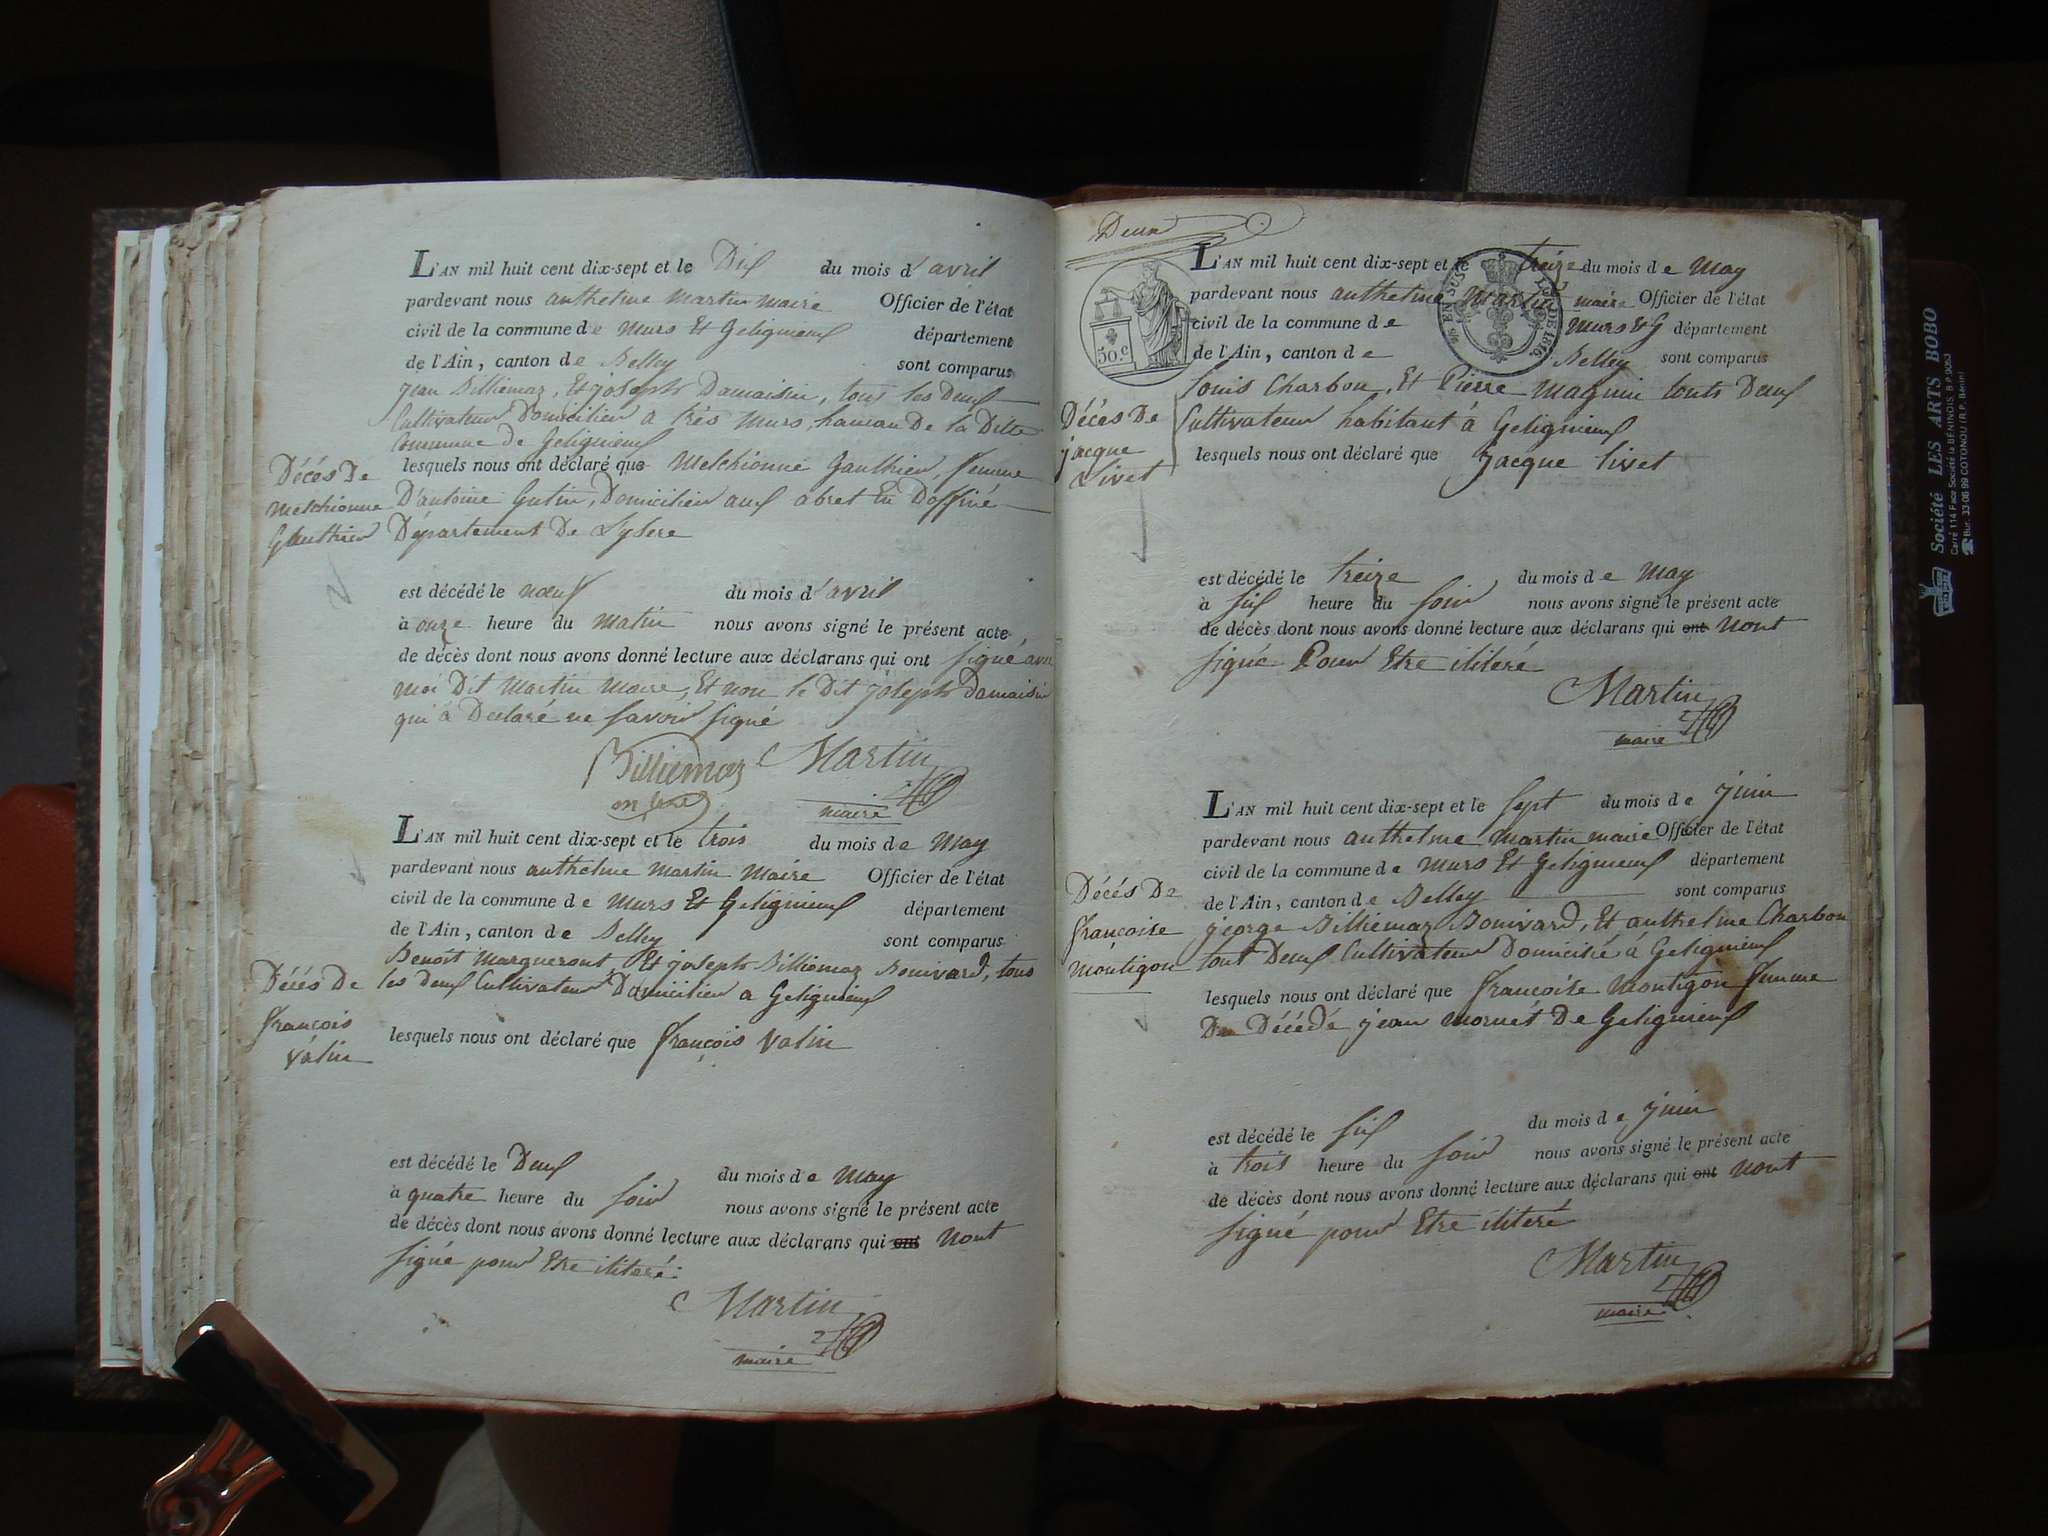 L'AN mil huit cent dix-sept et le Dix du mois d'avril
pardevant nous anthelme Martin maire Officier de l'état
civil de la commune de Murs Et Geligneux département
de l'Ain, canton de Belley sont comparus
jean Billiemaz, Et joseph Damaisin, tous les Deux
Cultivateur Domicilier a très Murs, hameau De la Ditte
Commune de Geligneux
Décés De
Melchionne
Gauthier
lesquels nous ont déclaré que Melchionne Gauthier, femme
D'antoine Gutin, Domicilier aux abret En Doffiné
Département De L'ysere
est décédé le noeuf du mois d'avril
à onze heure du Matin nous avons signé le présent acte,
de décès dont nous avons donné lecture aux déclarans qui ont signé avec
moi Dit Martin Maire, Et non le Dit joseph Damaisin
qui à Déclaré ne savoir signé
Billiemaz Martin
maire
L'AN mil huit cent dix-sept et le trois du mois de May
pardevant nous anthelme Martin Maire Officier de l'état
civil de la commune de Murs Et Geligneux département
de l'Ain, canton de Belley sont comparus
Benoit Margueront, Et joseph Billiemaz Bonivard, tous
les Deux Cultivateur Domicilier a Geligneux
Décés De
François
Vatin
lesquels nous ont déclaré que François Vatin
est décédé le Deux du mois de May
à quatre heure du soir nous avons signé le présent acte
de décès dont nous avons donné lecture aux déclarans qui ont Nont
signé pour Etre iliteré
Martin
maire
Deux
50 c
L'AN mil huit cent dix-sept et le treize du mois de May
pardevant nous anthelme Martin maire Officier de l'état
civil de la commune de Murs & G département
de l'Ain, canton de Belley sont comparus
EN SUS DE 1816.
Louis Charbon, Et Pierre Magnin touts Deux
Cultivateur habitant à Geligneux
Décés De
jacque
Livet
lesquels nous ont déclaré que Jacque Livet
est décédé le treize du mois de May
à six heure du soir nous avons signé le présent acte
de décès dont nous avons donné lecture aux déclarans qui ont Nont
signé Pour Etre iliteré
Martin
maire
L'AN mil huit cent dix-sept et le sept du mois de juin
pardevant nous anthelme Martin maire Officier de l'état
civil de la commune de Murs Et Geligneux département
de l'Ain, canton de Belley sont comparus
george Billiemaz Bonivard, Et anthelme Charbon
tout Deux Cultivateur Domicilié à Geligneux
Décés De
françoise
Montigon
lesquels nous ont déclaré que françoise Montigon femme
Du Décédé jean Mornet De Geligneux
est décédé le six du mois de juin
à trois heure du soir nous avons signé le présent acte
de décès dont nous avons donné lecture aux déclarans qui ont Nont
signé pour Etre iliteré
Martin
maire
Société LES ARTS BOBO
Carré 114 Face Société la BÉNINOIS B.P. 9053
Bur. 33 06 99 COTONOU (R.P. Bénin)